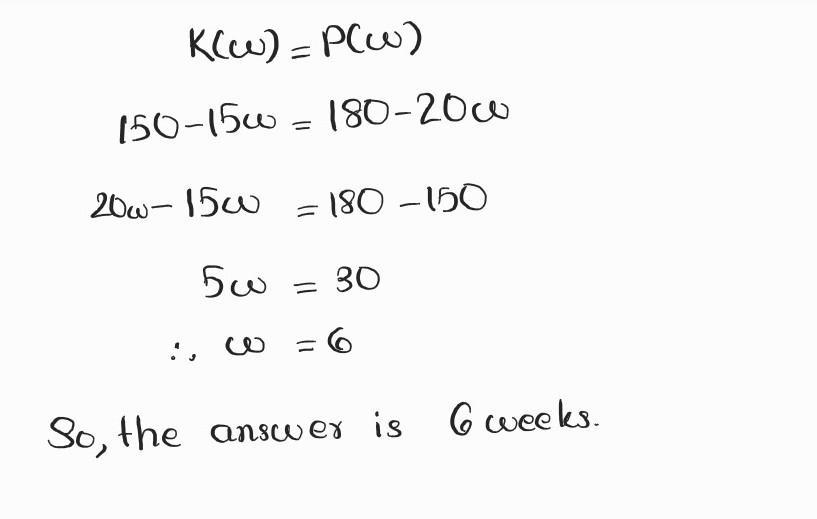 K(w) = P(w)
150-15w = 180-20w
20w- 15w = 180 -150
5w = 30
∴ w = 6
So, the answer is 6 weeks.